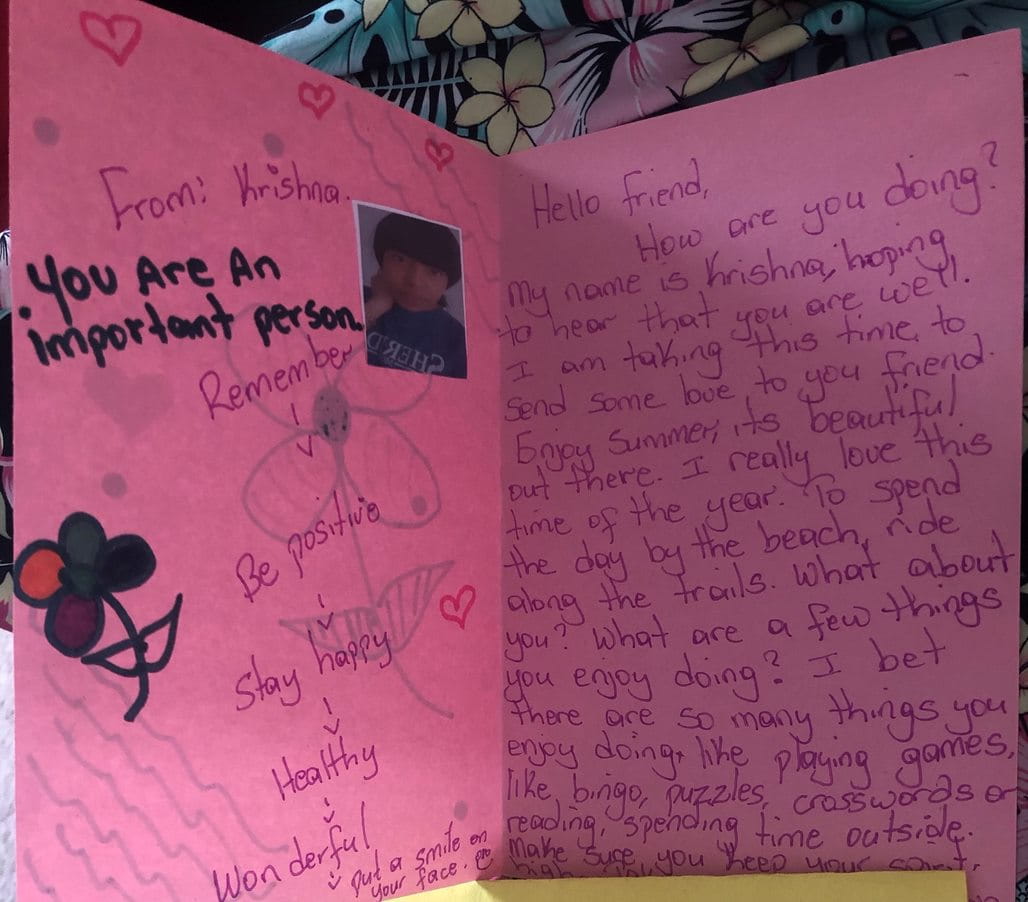 From: Krishna.
You Are An
important person.
Remember
Be positive
Stay happy
Healthy
Wonderful
put a smile on
your face.
SHER'D
Hello friend,
How are you doing?
My name is Krishna, hoping
to hear that you are well.
I am taking this time to
send some love to you friend.
Enjoy summer, its beautiful
out there. I really love this
time of the year. To spend
the day by the beach, ride
along the trails. What about
you? What are a few things
you enjoy doing? I bet
there are so many things you
enjoy doing, like playing games,
like bingo, puzzles, crosswords or
reading, spending time outside.
Make sure you keep your